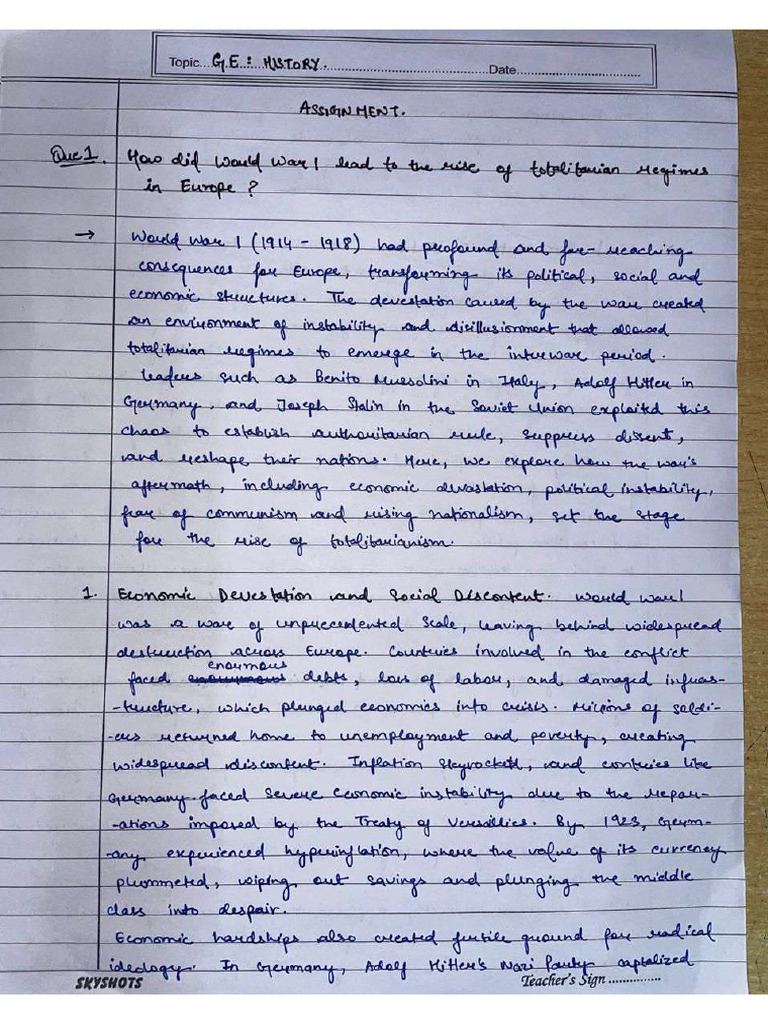 Topic....G.E.:..HISTORY...............................Date...............................
ASSIGNMENT.
Que 1. How did World War 1 lead to the rise of totalitarian regimes
in Europe ?
→ World War 1 (1914 - 1918) had profound and far-reaching
consequences for Europe, transforming its political, social and
economic structures. The devestation caused by the war created
an environment of instability and disillusionment that allowed
totalitarian regimes to emerge in the interwar period.
leaders such as Benito Mussolini in Italy, Adolf Hitler in
Germany, and Joseph Stalin in the Soviet Union exploited this
chaos to establish authoritarian rule, suppress dissent,
and reshape their nations. Here, we explore how the war's
aftermath, including economic devastation, political instability,
fear of communism and rising nationalism, set the stage
for the rise of totalitarianism.
1. Economic Devestation and Social Discontent. World War 1
was a war of unprecedented scale, leaving behind widespread
destruction across Europe. Countries involved in the conflict
enormous
faced debts, loss of labor, and damaged infras-
-tructure, which plunged economies into crisis. Millions of soldi-
-ers returned home to unemployment and poverty, creating
widespread discontent. Inflation skyrocketed, and contries like
Germany faced severe economic instability due to the repar-
-ations imposed by the Treaty of Versailles. By 1923, Germ-
-any experienced hyperinflation, where the value of its currency
plummeted, wiping out savings and plunging the middle
class into despair.
Economic hardships also created fertile ground for radical
ideology. In Germany, Adolf Hitler's Nazi Party captalized
SKYSHOTS
Teacher's Sign ...............